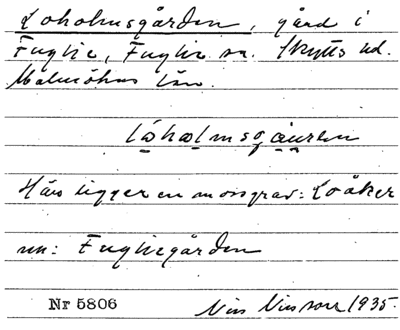 Loholmsgården, gård i
Fuglie, Fuglie sn. Skytts hd.
Malmöhus län.
Här ligger en mossgrav: Loåker
nu: Fugliegården
Nr 5806 Nils Nilsson 1935.